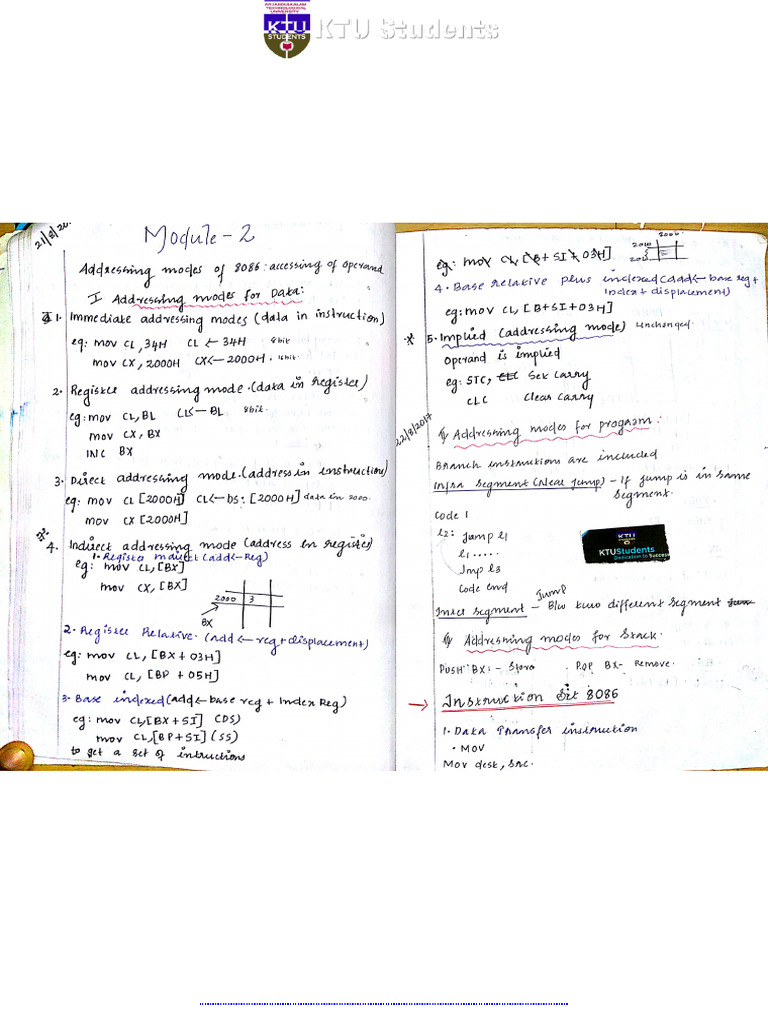 APJ ABDUL KALAM
TECHNOLOGICAL
UNIVERSITY
KTU
STUDENTS
KTU Students
21/8/20
Module-2
Addressing modes of 8086: accessing of operand
I Addressing modes for Data:
1. Immediate addressing modes (data in instruction)
eg: mov CL, 34H CL ← 34H 8bit
mov CX, 2000H CX ← 2000H. 16bit
2. Register addressing mode. (data in register)
eg: mov CL, BL CL ← BL 8bit.
mov CX, BX
INC BX
3. Direct addressing mode. (address in instruction)
eg: mov CL [2000H] CL ← DS: [2000H] data in 2000.
mov CX [2000H]
4. Indirect addressing mode (address in register)
1. Register indirect (add ← Reg)
eg: mov CL, [BX]
mov CX, [BX]
2000 3
BX
2. Register Relative. (add ← reg + displacement)
eg: mov CL, [BX + 03H]
mov CL, [BP + 05H]
3. Base indexed (add ← base reg + Index Reg)
eg: mov CL, [BX + SI] (DS)
mov CL, [BP + SI] (SS)
to get a set of intructions
2000
eg: mov CL, [B + SI + 03H]
4. Base relative plus indexed (add ← base reg +
Index + displacement)
eg: mov CL, [B+SI+03H]
5. Implied (addressing mode) unchanged.
operand is implied
eg: STC, CLC Set carry
CLC Clear carry
22/8/2017
Addressing modes for program:
Branch instructions are included
Intra segment (Near jump) - If jump is in same
segment.
Code 1
l2: Jump l1
l1 .....
Jmp l3
Code end
KTU
KTUStudents
Dedication to Success
Jump
Inter segment - B/w two different segment
Addressing modes for Stack.
PUSH BX: - Store . POP BX - Remove.
→ Instruction Set 8086
1. Data Transfer instruction
• MOV
Mov dest, src.